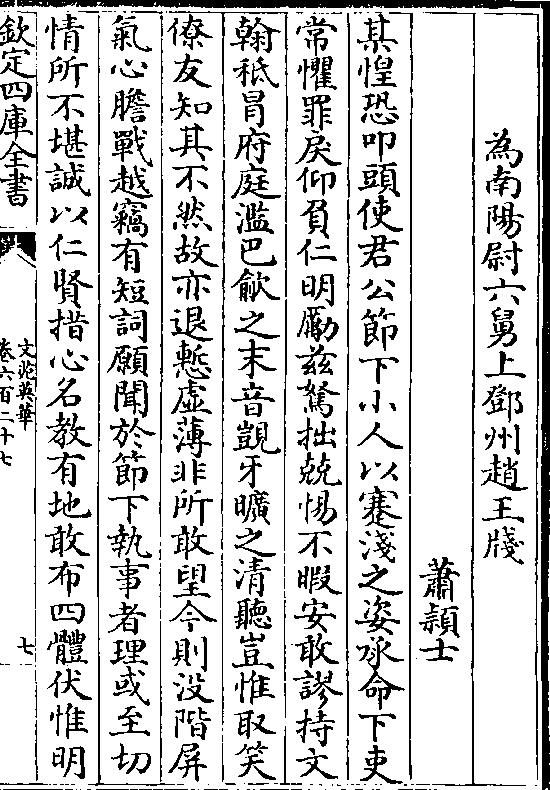 為南陽尉六舅上鄧州趙王牋
蕭頴士
某惶恐叩頭使君公節下小人以蹇淺之姿承命下吏
常懼罪戾仰負仁明勵兹駑拙兢惕不暇安敢謬持文
翰秪冒府庭濫巴歈之末音覬牙曠之清聽豈惟取笑
僚友知其不然故亦退慙虚薄非所敢望今則没階屏
氣心膽戰越竊有短詞願聞於節下執事者理或至切
情所不堪誠以仁賢措心名教有地敢布四體伏惟明
欽定四庫全書
文苑英華
卷六百二十七
七